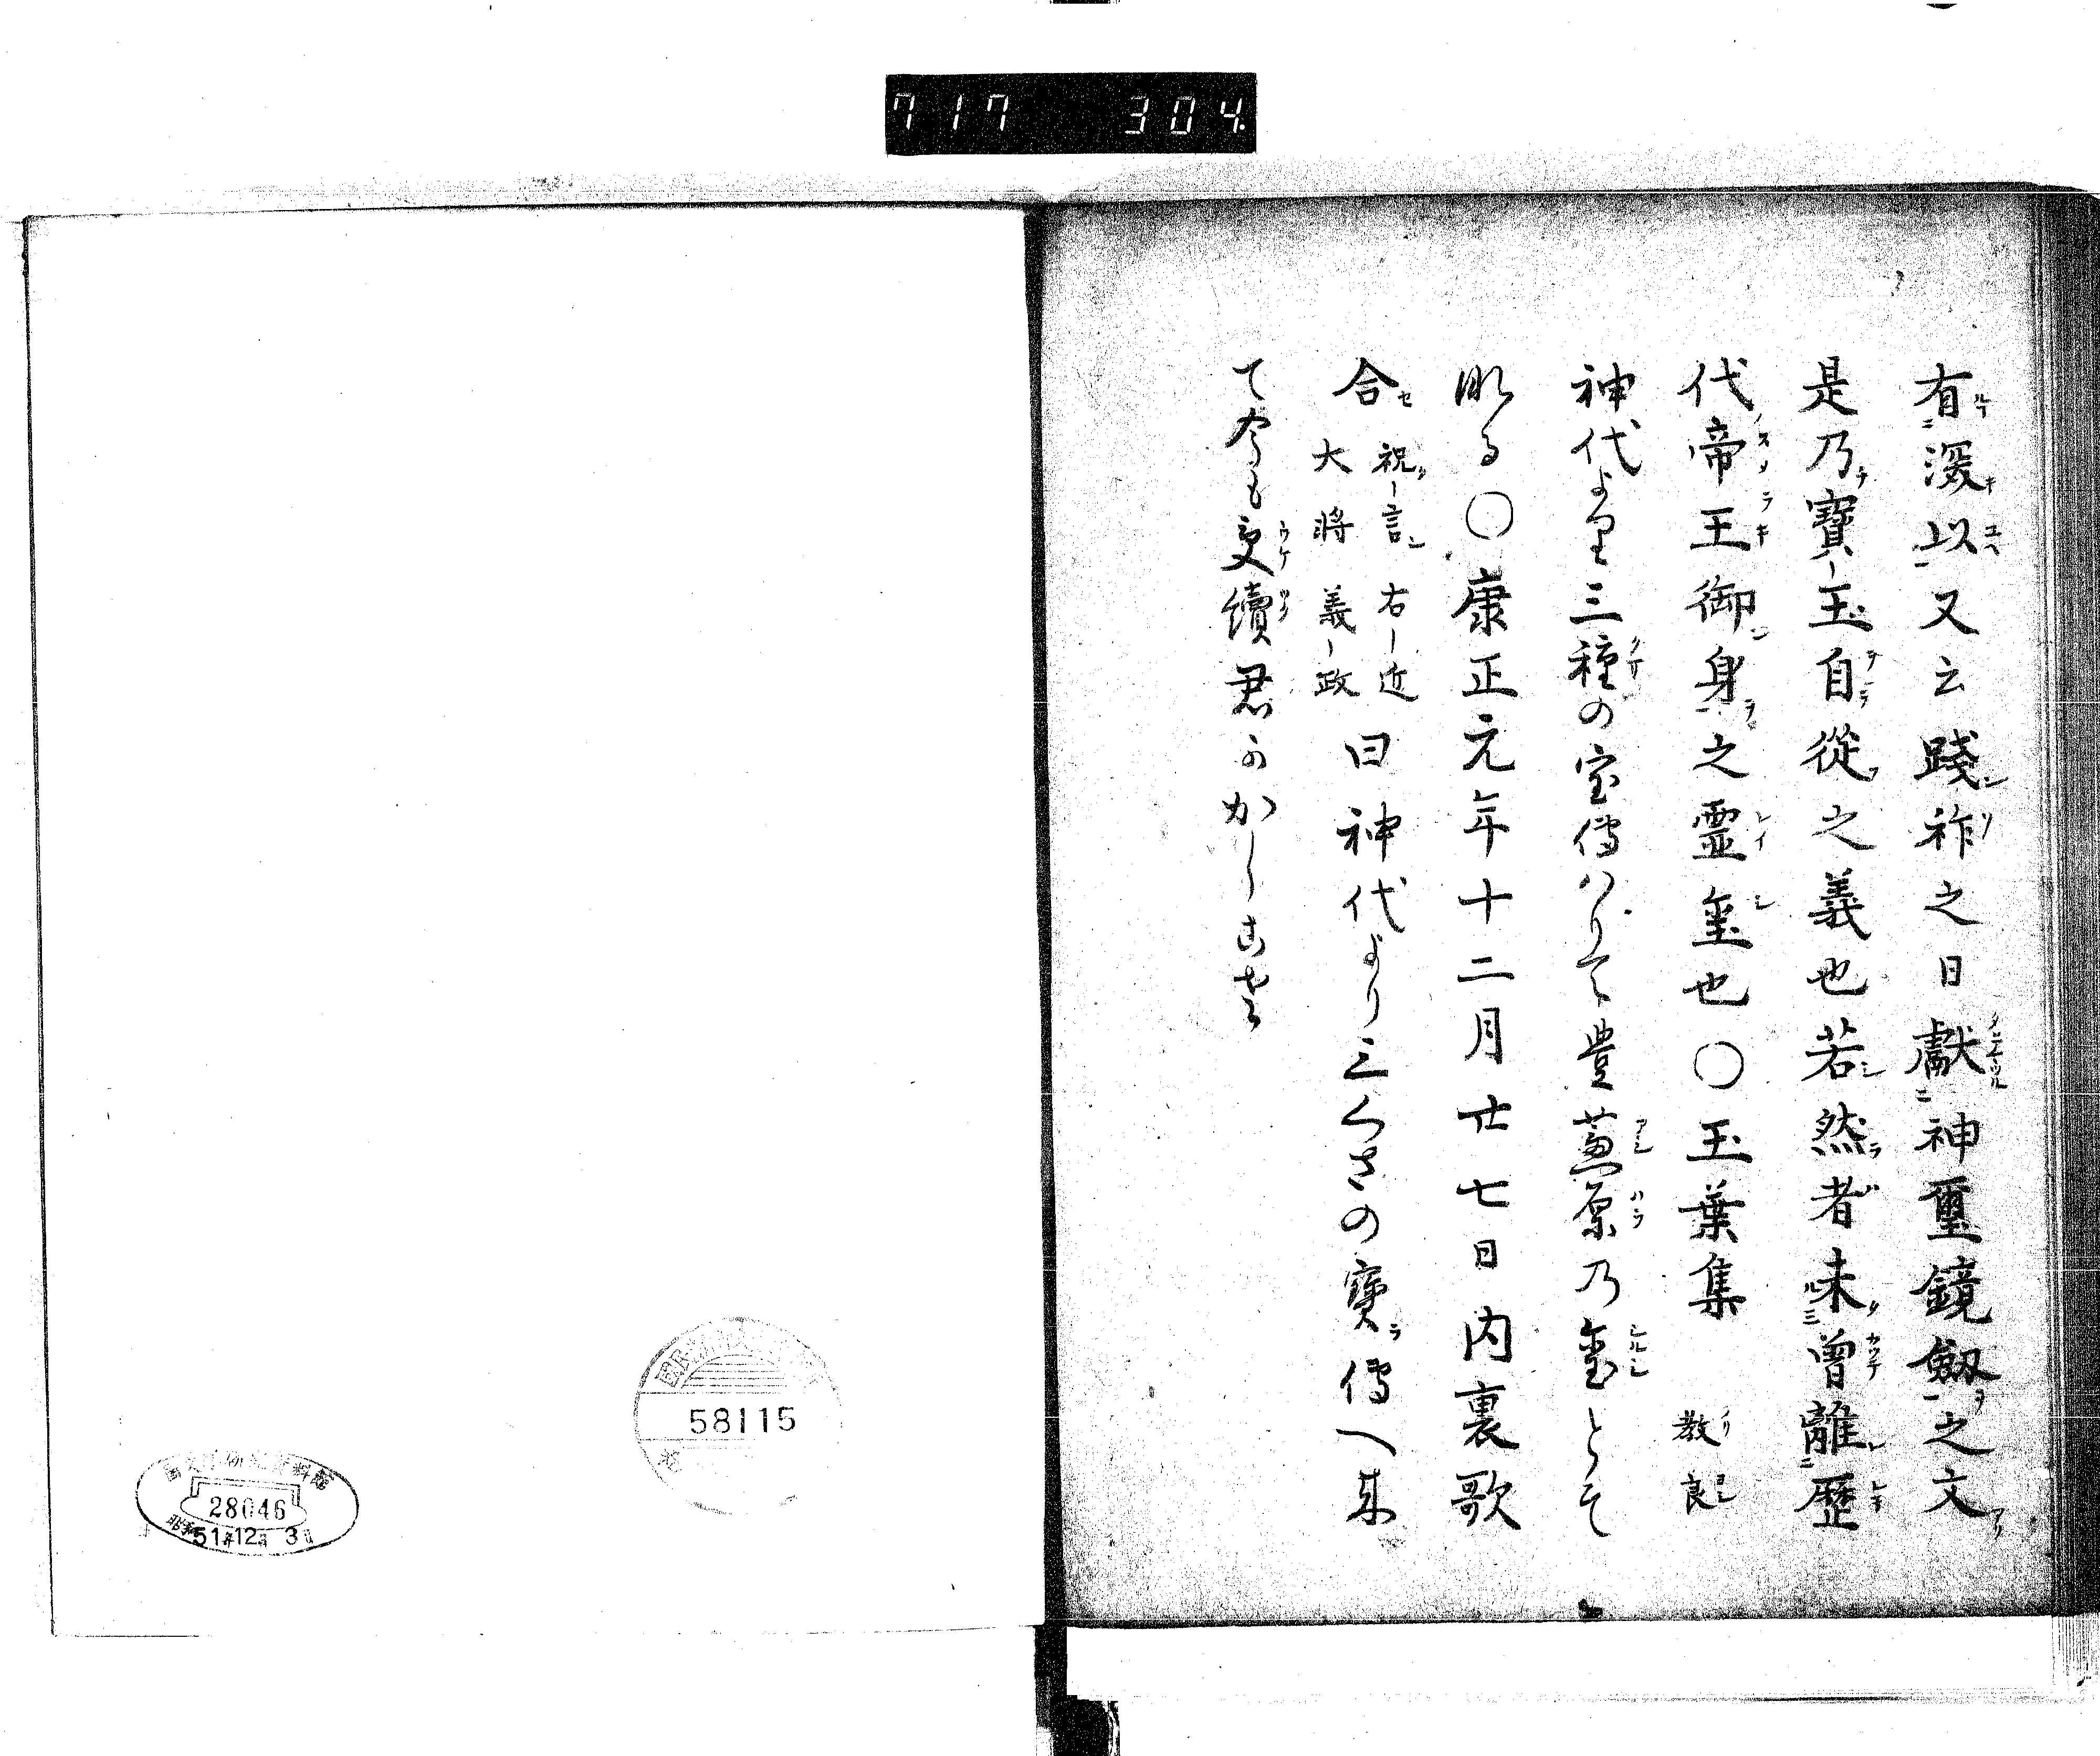 717 304.
有深以又云践祚之日獻神璽鏡劔之文
是乃寳玉自從之義也若然者未曾離歴
代帝王御身之霊璽也〇玉葉集 教良
神代より三種の宝傳ハりて豊葦原乃璽とそ
〇康正元年十二月廿七日内裏歌
合 祝言 右近
大将 義政 曰神代より三くさの寳傳へ来
て今も受續君かかしこさ
58115
28046
51年12月3日